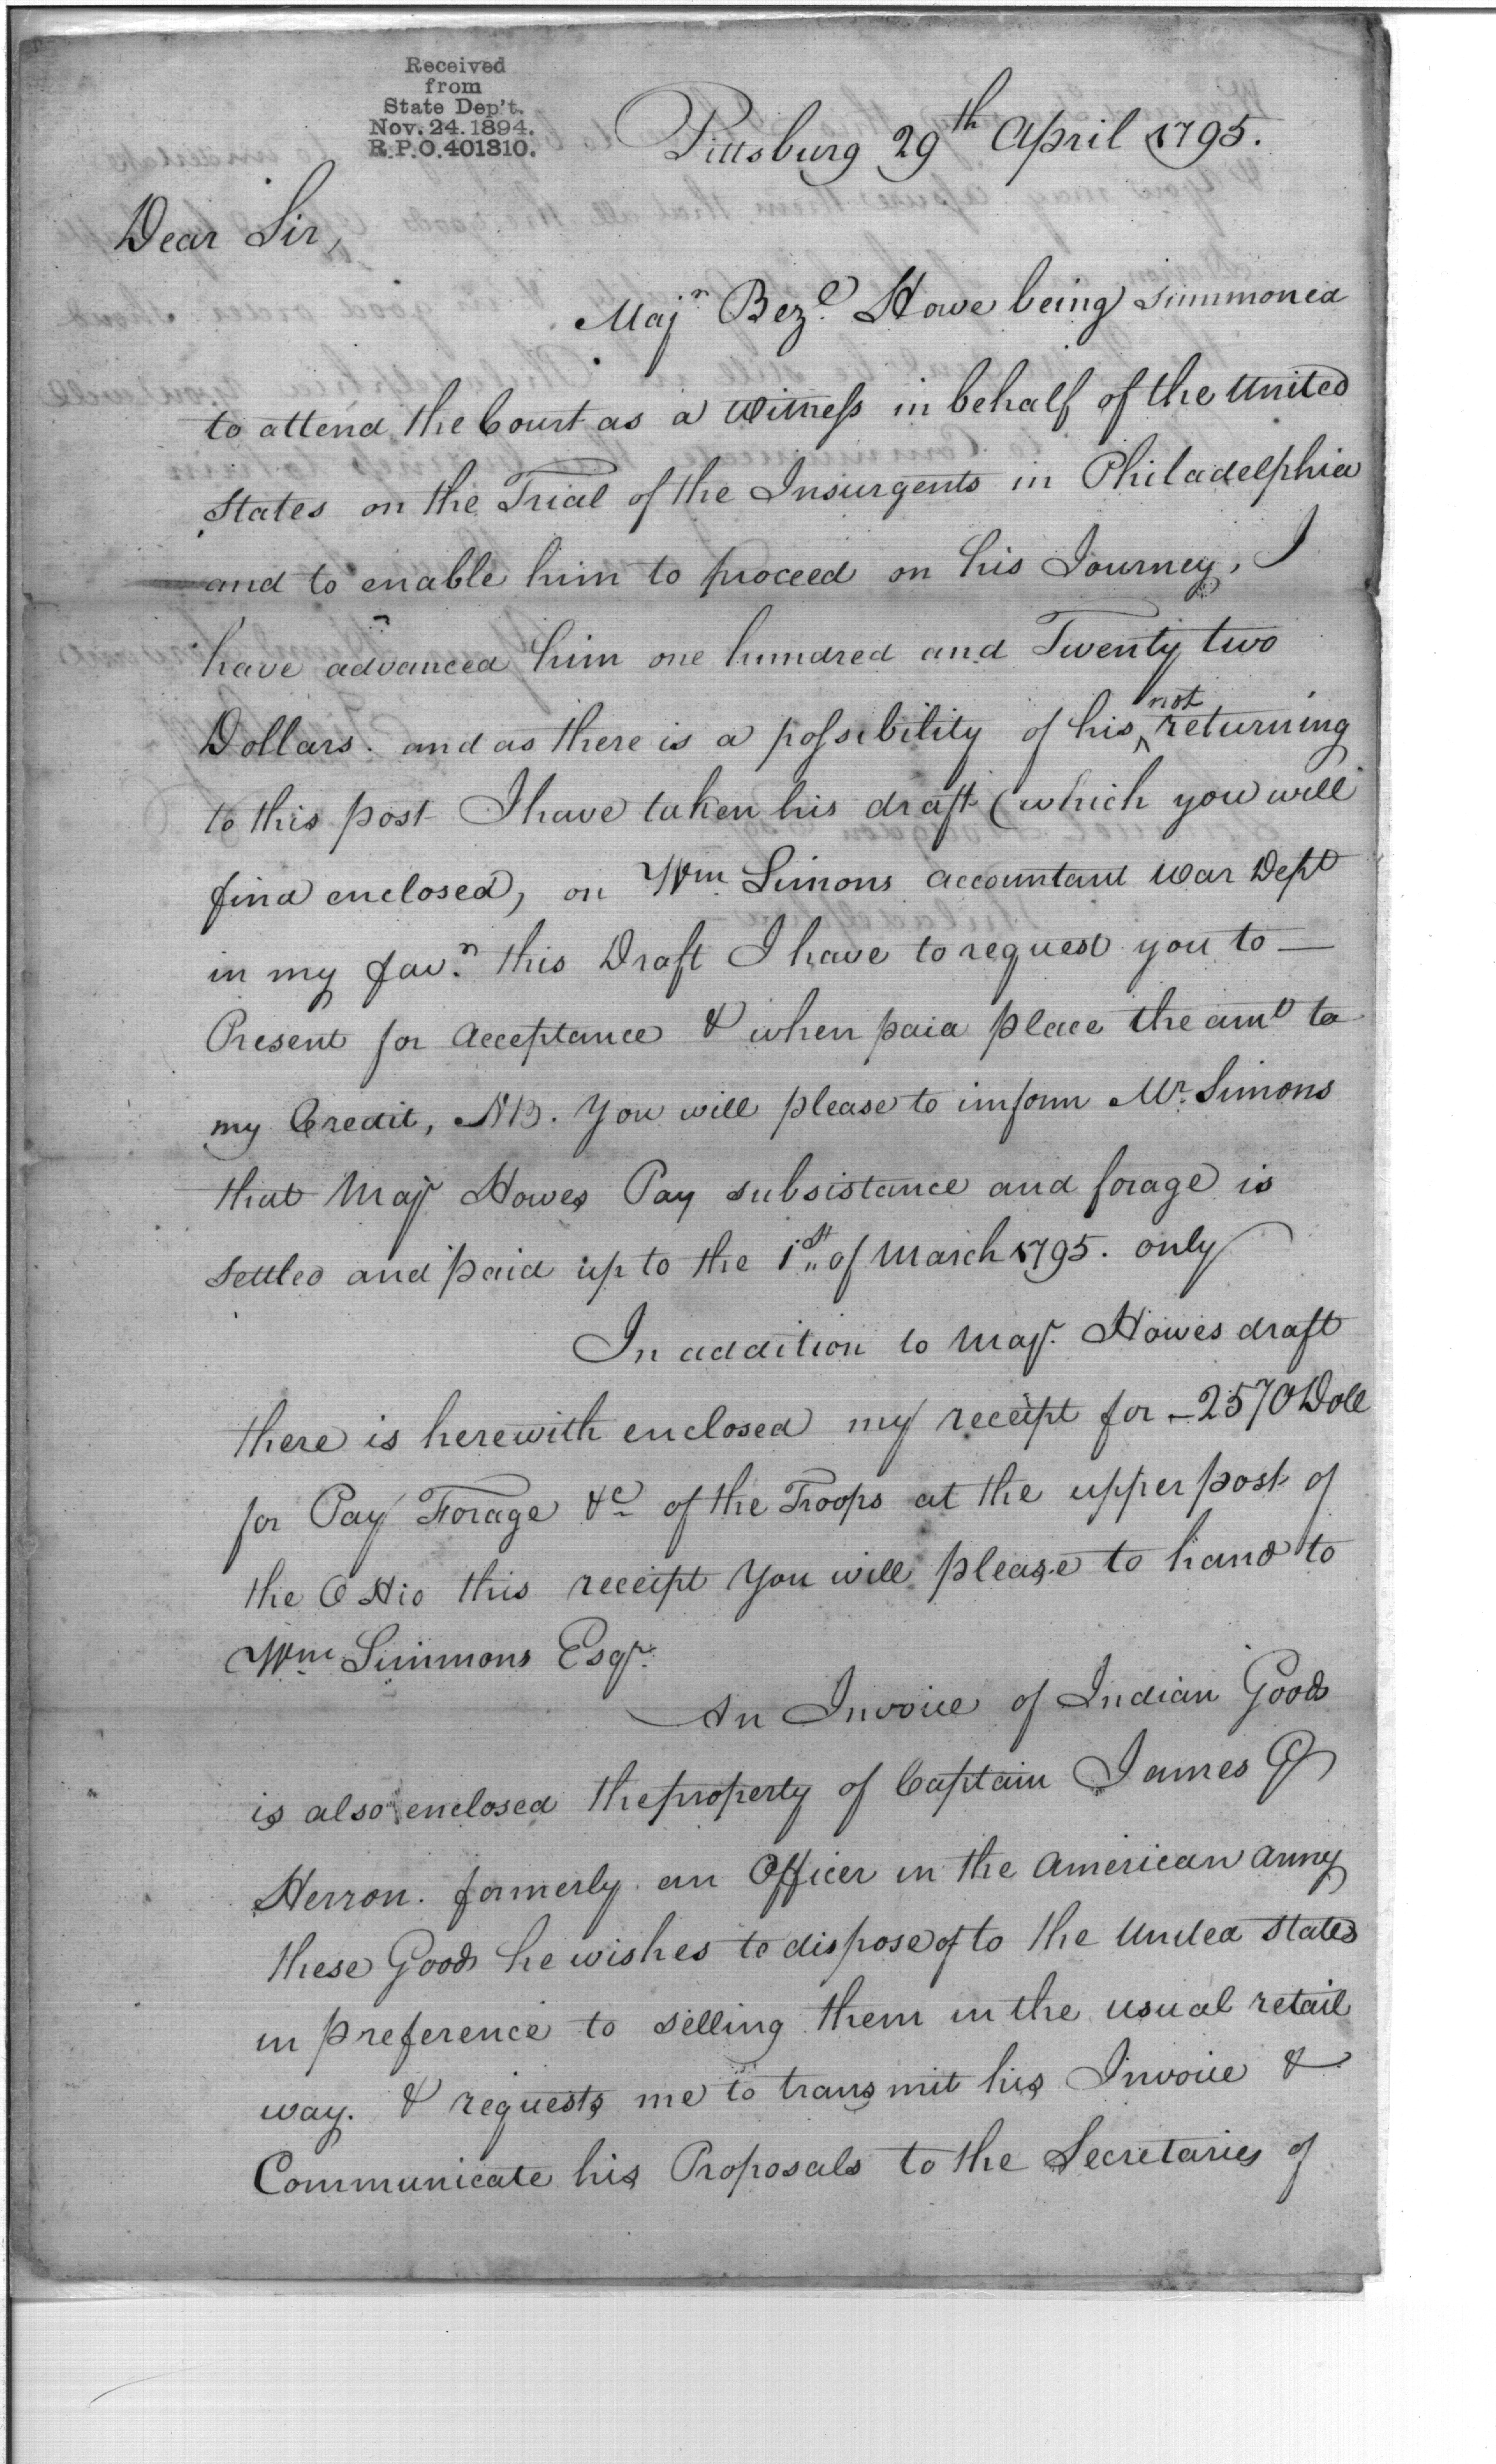 Received
from
State Dep't.
Nov. 24. 1894.
R.P.O. 401810.
Pittsburg 29th April 1795.
Dear Sir,
Majr Beze. Howe being summoned
to attend the Court as a Witness in behalf of the United
States on the Trial of the Insurgents in Philadelphia
and to enable him to proceed on his Journey, I
have advanced him one hundred and Twenty two
Dollars. and as there is a possibility of his not returning
to this post I have taken his draft (which you will
find enclosed, on Wm Simons accountant War Dept
in my favr. this Draft I have to request you to —
Present for Acceptance & when paid place the amt to
my Credit, NB. You will please to inform Mr. Simons
that Majr Howes Pay subsistance and forage is
settled and paid up to the 1st of March 1795. only
In addition to Majr. Howes draft
there is herewith enclosed my receipt for 2570 Doll
for Pay Forage &c of the Troops at the upper post of
the OHio this receipt You will please to hand to
Wm Simmons Esqr.
An Invoice of Indian Goods
is also enclosed the property of Captain James G
Herron. formerly an Officer in the American army
these Goods he wishes to dispose of to the United States
in preference to selling them in the usual retail
way. & requests me to transmit his Invoice &
Communicate his Proposals to the Secretaries of